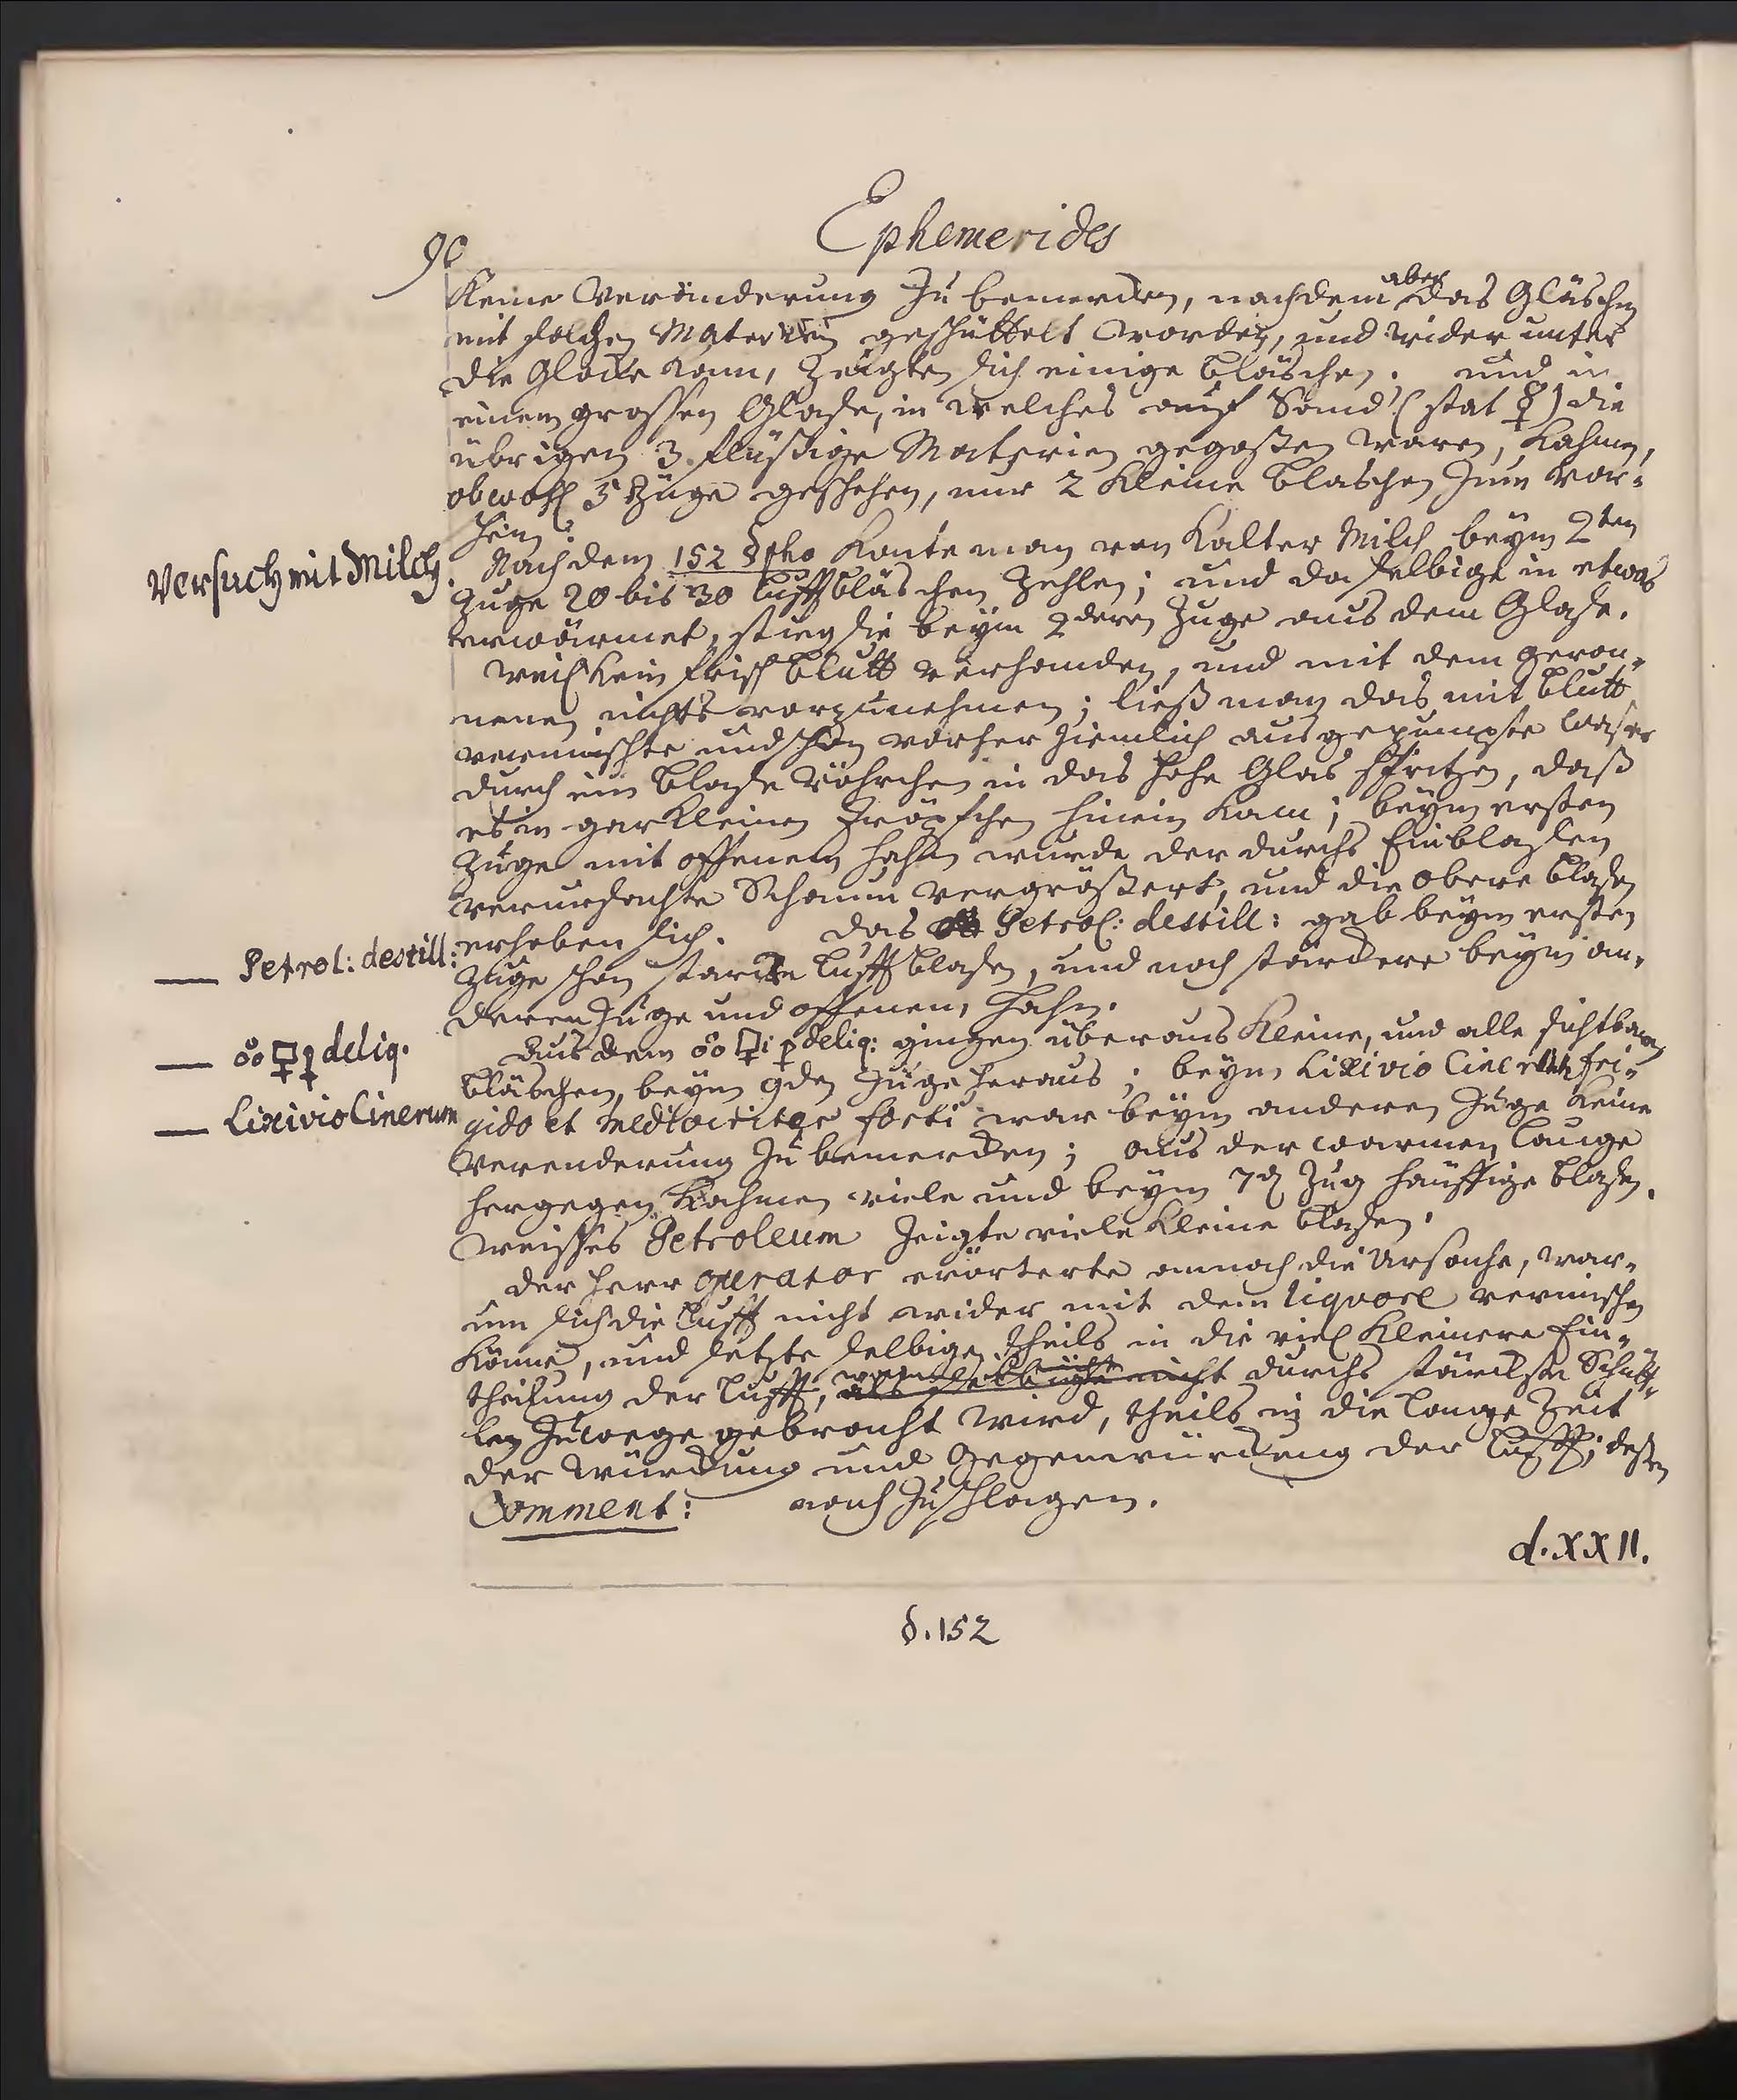 Ephemerides
90
Keine Veränderung zu bemercken, nachdem aber das Gläschen
mit solchen Materien geschüttelt worden, und wider unter
die Glocke kam, zeigten sich einige bläschen. und in
einem grossen Glase, in welches auf Sand (stat ☿) die
übrigen 3. flüßige Materien gegoßen waren, kahmen,
obwohl 5 Züge geschehen, nur 2 kleine blaschen zum vor-
schein.
Versuch mit Milch.
Nach dem 152 §pho konte man von kalter Milch beÿm 2ten
Zuge 20 bis 30 lufftbläschen zehlen; und da selbige in etwas
erwärmet, stieg sie beÿm 2deren Zuge aus dem Glase.
Weil kein frisch blutt verhanden, und mit dem geron-
nenen nichts vorzunehmen; ließ man das mit blutt
vermischte und schon vorher ziemlich ausgepumpte Waser
durch ein blase Röhrchen in das hohe Glas spritzen, daß
es in gar kleinen Tröpfchen hinein kam; beÿm ersten
Zuge mit offenem hahn wurde der durchs Einblasen
verursachte Schaum vergrößert, und die obere blasen
erheben sich. das Petrol: destill: gab beÿm ersten
— Petrol: destill:
Zuge schon starcke lufftblasen, und noch stärckere beÿm an-
deren Zuge und offenen Hahn.
— deliq.
Aus dem deliq: gingen überaus kleine, und alle sichtbaren
bläschen, beÿm 9den Zuge heraus; beÿm Lixivio Cinerum fri-
— Lixivio Cinerum
gido et mediocriter forti war beÿm anderen Zuge keine
Verenderung zu bemercken; aus der warmen Lauge
hergegen kahmen viele und beÿm 7den Zug häuffige blasen.
Weisses Petroleum zeigte viele kleine blasen.
Der Herr Operator erörterte annoch die Ursache, war-
um sich die lufft nicht wider mit dem liquore vermischen
könne, und setzte selbige theils in die viel kleinere Ein-
theilung der lufft, als nicht durchs stärckste Schütt-
len zuwege gebracht wird, theils in die lange Zeit
der Würckung und Gegenwürckung der lufft; deßen
Comment: nach zuschlagen.
d. XXII.
§. 152